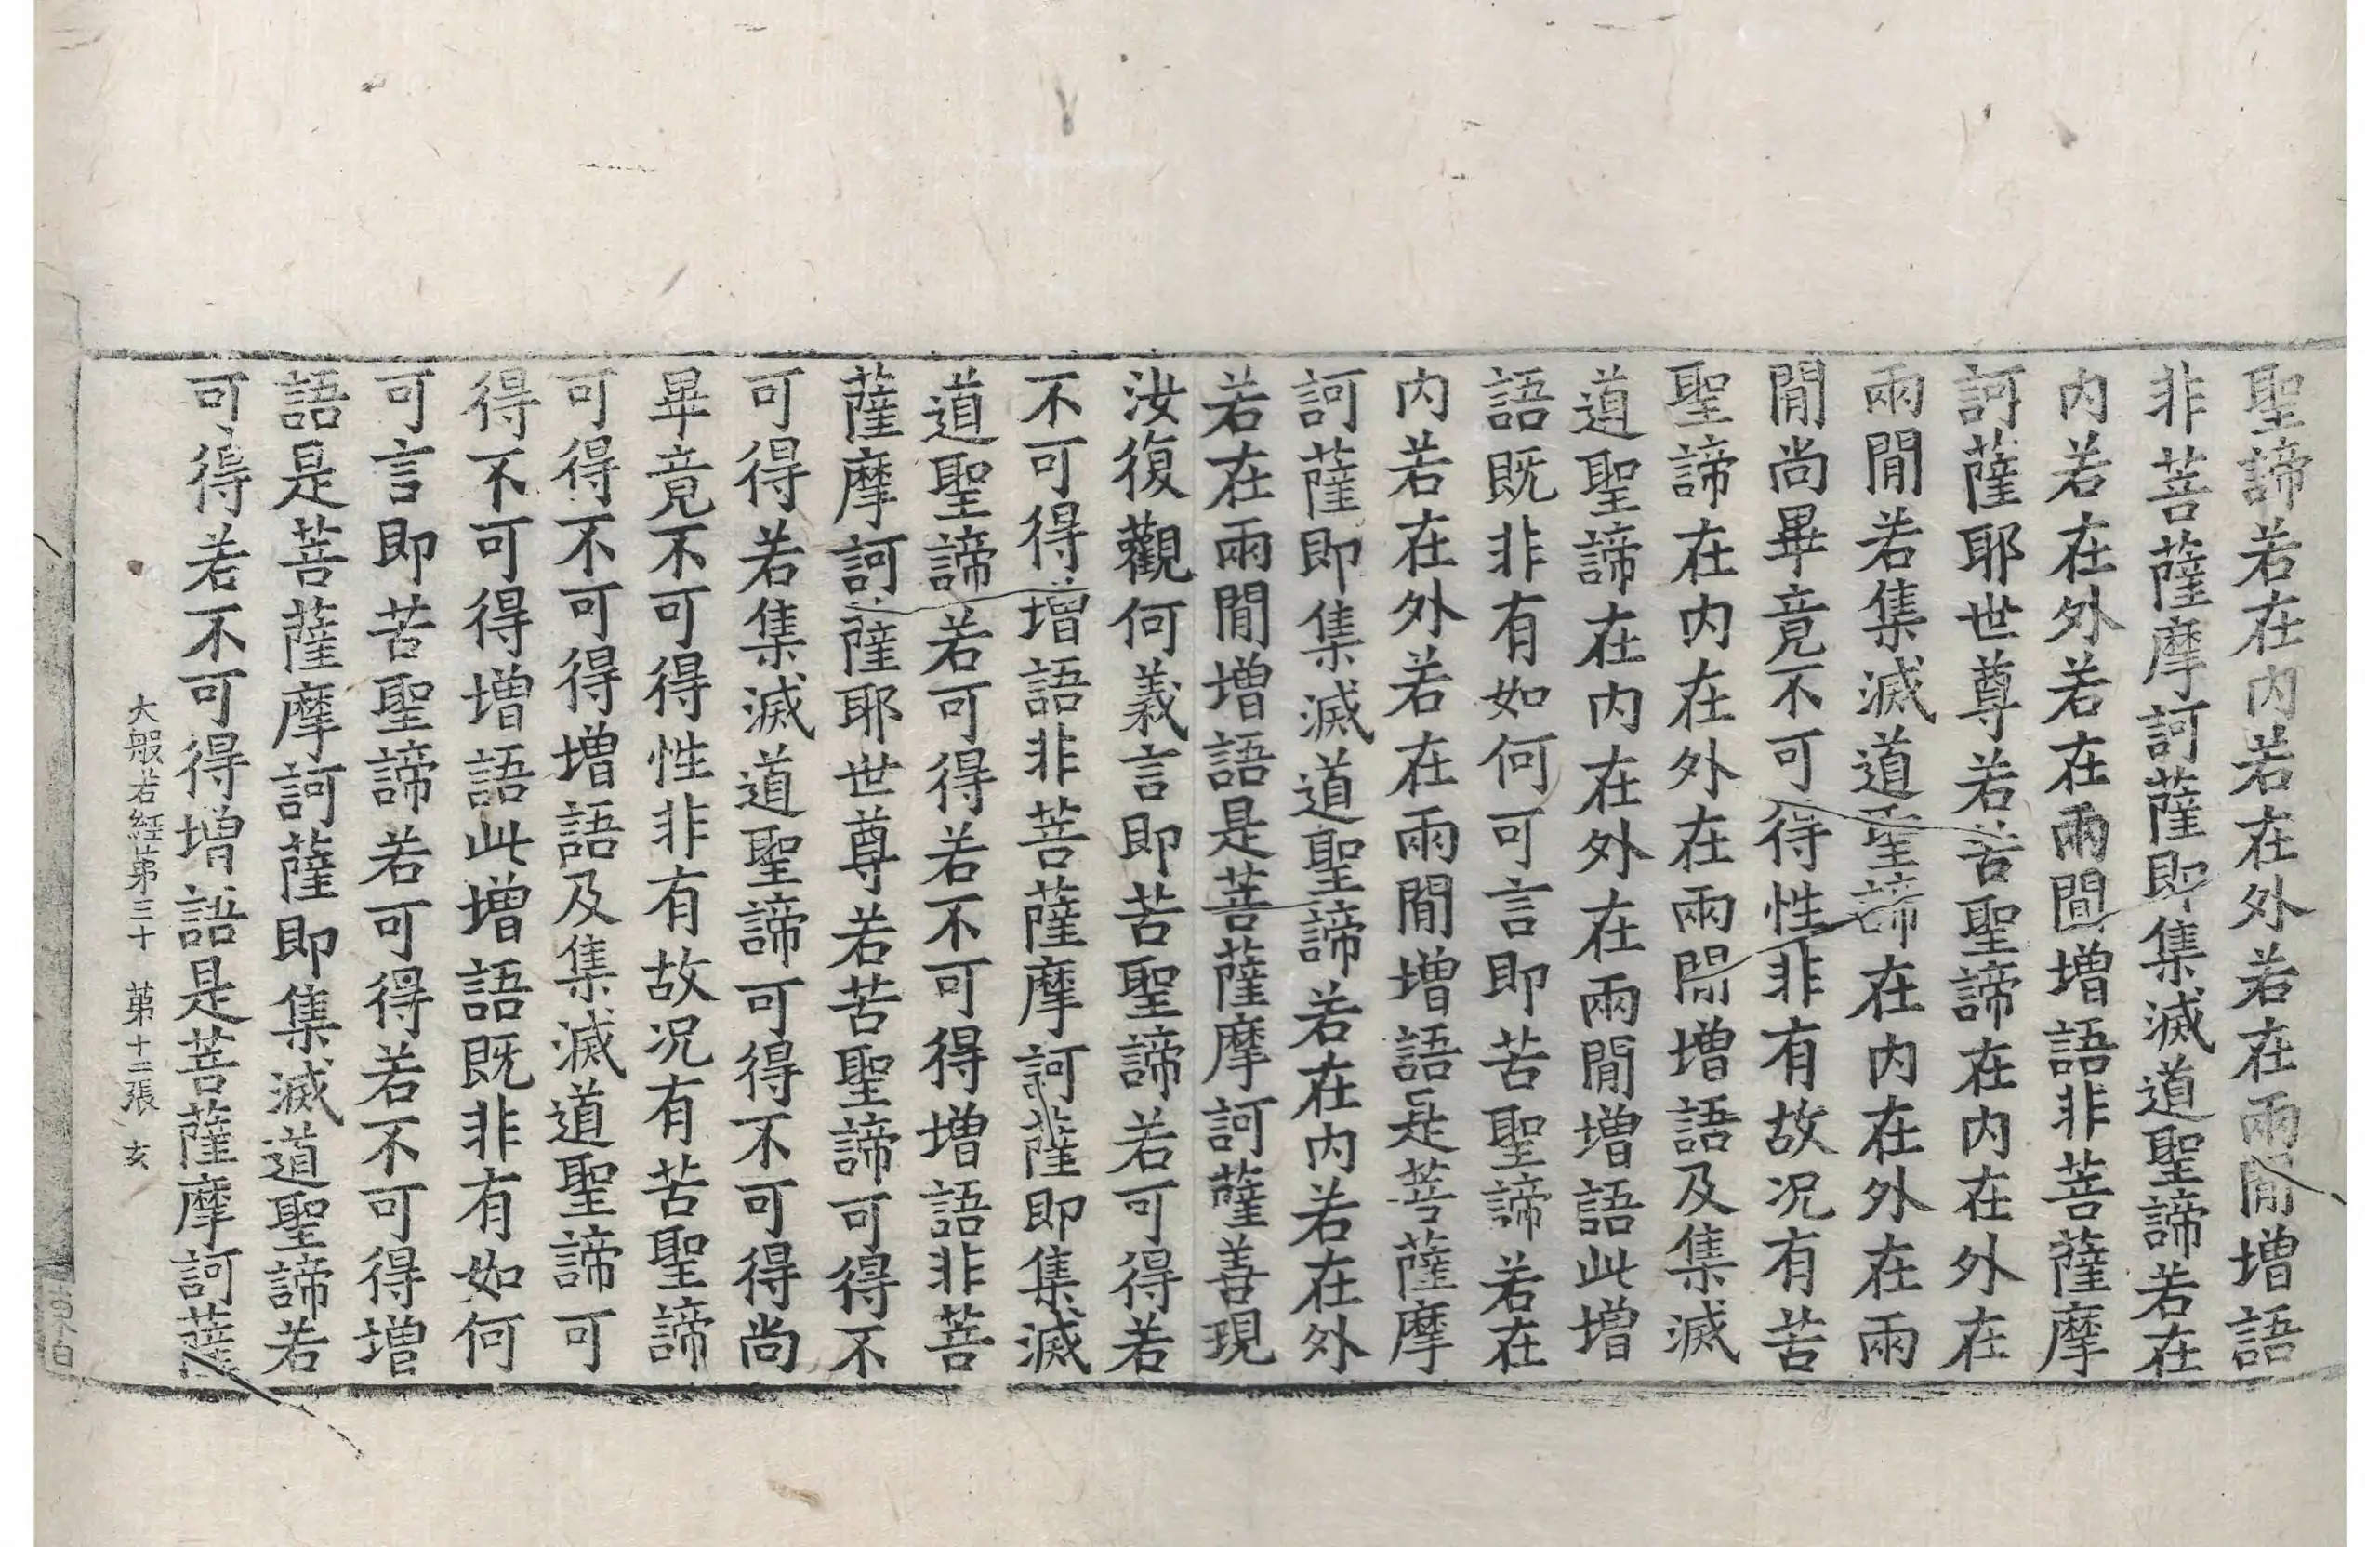 聖諦若在内若在外若在兩閒增語
非菩薩摩訶薩即集滅道聖諦若在
内若在外若在兩閒增語非菩薩摩
訶薩耶世尊若苦聖諦在内在外在
兩閒若集滅道聖諦在内在外在兩
閒尚畢竟不可得性非有故况有苦
聖諦在内在外在兩閒增語及集滅
道聖諦在内在外在兩閒增語此增
語既非有如何可言即苦聖諦若在
内若在外若在兩閒增語是菩薩摩
訶薩即集滅道聖諦若在内若在外
若在兩閒增語是菩薩摩訶薩善現
汝復觀何義言即苦聖諦若可得若
不可得增語非菩薩摩訶薩即集滅
道聖諦若可得若不可得增語非菩
薩摩訶薩耶世尊若苦聖諦可得不
可得若集滅道聖諦可得不可得尚
畢竟不可得性非有故况有苦聖諦
可得不可得增語及集滅道聖諦可
得不可得增語此增語既非有如何
可言即苦聖諦若可得若不可得增
語是菩薩摩訶薩即集滅道聖諦若
可得若不可得增語是菩薩摩訶薩
大般若經第三十 第十二張 玄